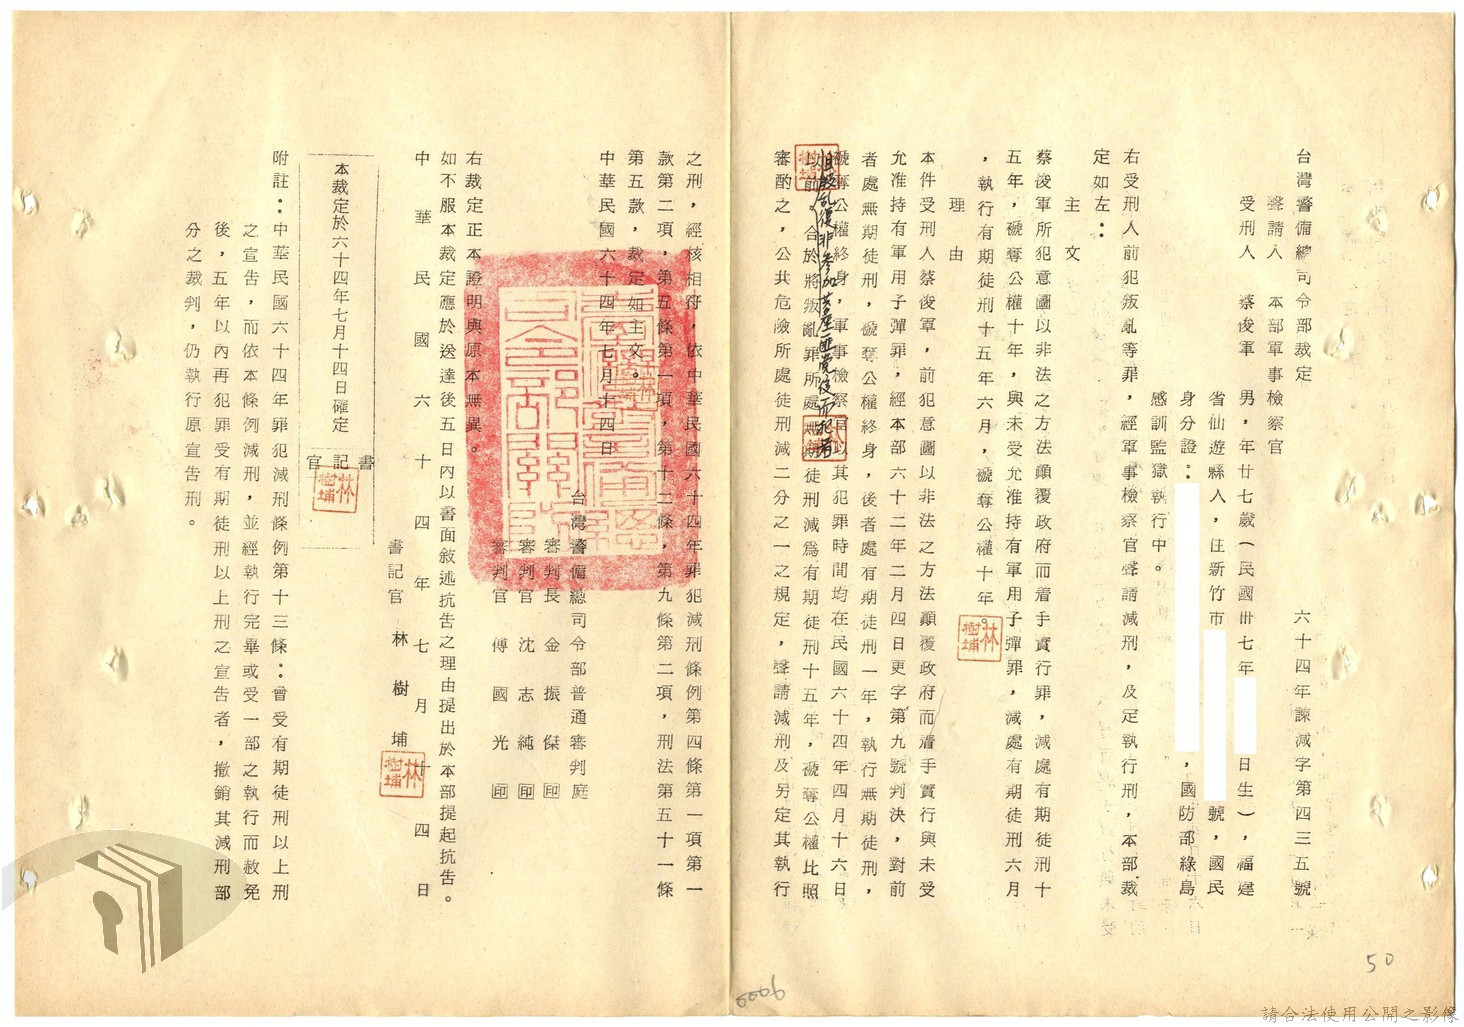 台灣警備總司令部裁定
六十四年諫減字第四三五號
聲請人　本部軍事檢察官
受刑人　蔡俊軍　男，年廿七歲（民國卅七年
日生），福建
省仙遊縣人，住新竹市
號，國民
身分證：
，國防部綠島
感訓監獄執行中。
右受刑人前犯叛亂等罪，經軍事檢察官聲請減刑，及定執行刑，本部裁
定如左：
主文
蔡俊軍所犯意圖以非法之方法顛覆政府而着手實行罪，減處有期徒刑十
五年，褫奪公權十年，與未受允准持有軍用子彈罪，減處有期徒刑六月
，執行有期徒刑十五年六月，褫奪公權十年。
林樹埔
理由
本件受刑人蔡俊軍，前犯意圖以非法之方法顛覆政府而着手實行與未受
允准持有軍用子彈罪，經本部六十二年二月四日更字第九號判決，對前
者處無期徒刑，褫奪公權終身，後者處有期徒刑一年，執行無期徒刑，
褫奪公權終身，軍事檢察官以其犯罪時間均在民國六十四年四月十六日
且叛亂復非參加共產匪黨後而犯者
以前，合於將叛亂罪所處無期徒刑減為有期徒刑十五年，褫奪公權比照
審酌之，公共危險所處徒刑減二分之一之規定，聲請減刑及另定其執行
之刑，經核相符，依中華民國六十四年罪犯減刑條例第四條第一項第一
款第二項，第五條第一項，第十二條，第九條第二項，刑法第五十一條
第五款，裁定如主文。
中華民國六十四年七月十四日
台灣警備總司令部普通審判庭
審判長　金振傑　印
審判官　沈志純　印
審判官　傅國光　印
右裁定正本證明與原本無異。
如不服本裁定應於送達後五日內以書面敘述抗告之理由提出於本部提起抗告。
中華民國六十四年七月十四日
書記官　林樹埔
林樹埔
本裁定於六十四年七月十四日確定
書記官
林樹埔
附註：中華民國六十四年罪犯減刑條例第十三條：曾受有期徒刑以上刑
之宣告，而依本條例減刑，並經執行完畢或受一部之執行而赦免
後，五年以內再犯罪受有期徒刑以上刑之宣告者，撤銷其減刑部
分之裁判，仍執行原宣告刑。
50
請合法使用公開之影像